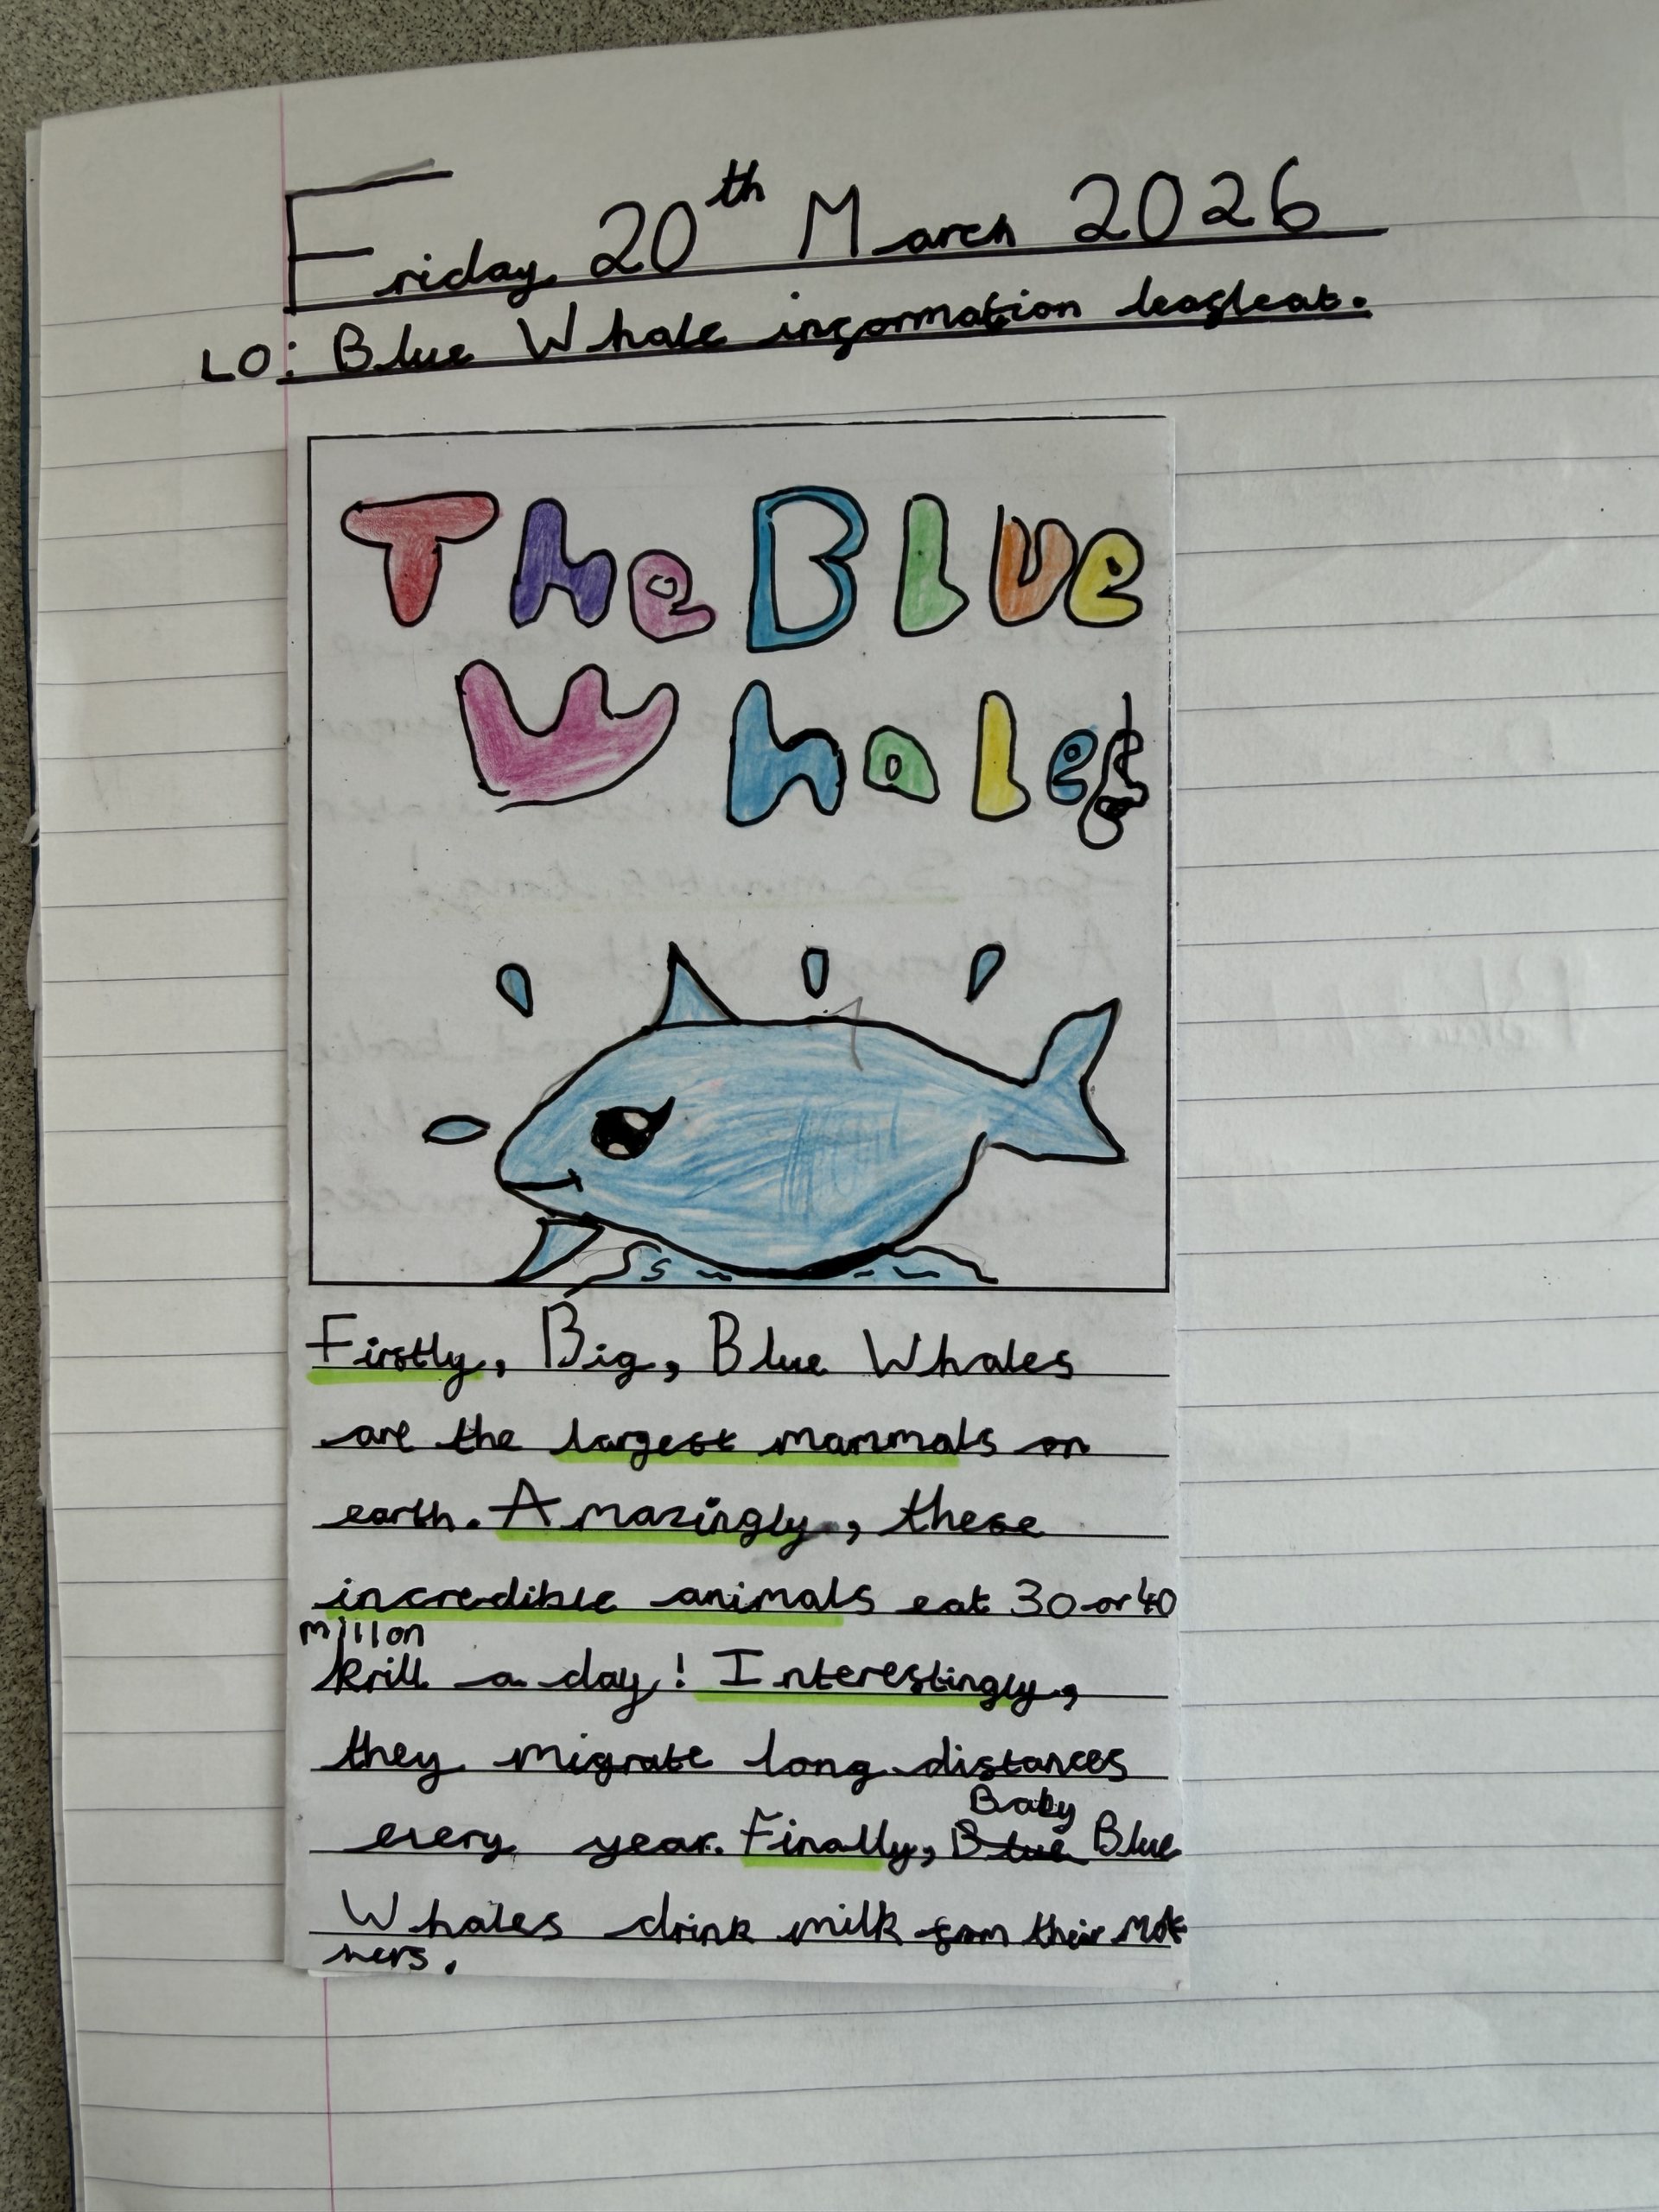 Friday 20th March 2026
LO: Blue Whale information leafleat.
The BLUE
Whales
Firstly, Big, Blue Whales
are the largest mammals on
earth. Amazingly, these
incredible animals eat 30 or 40
millon
krill a day! Interestingly,
they migrate long distances
every year. Finally, Blue Baby Blue
Whales drink milk from their mot
hers.